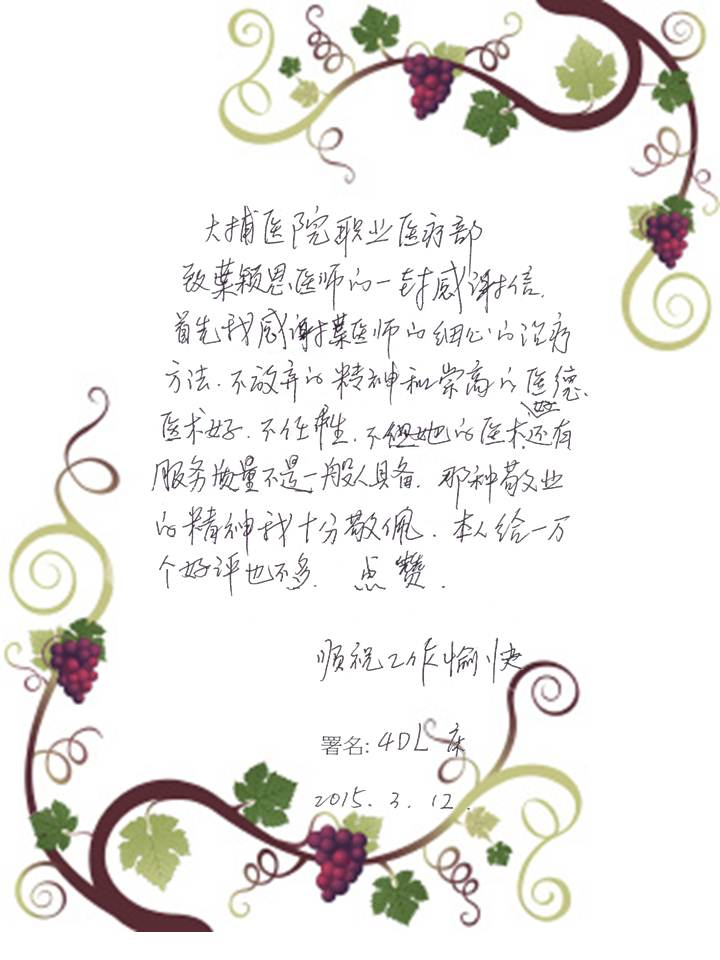 大埔医院职业医疗部
致葉颖恩医师的一封感谢信.
首先我感谢葉医师的细心的治疗
方法.不放弃的精神和崇高的医德.
医术好.不任性.不但她的医术好还有
服务质量不是一般人具备.那种敬业
的精神我十分敬佩.本人给一万
个好评也不多.点赞.
顺祝工作愉快
署名: 4DL 床
2015.3.12.